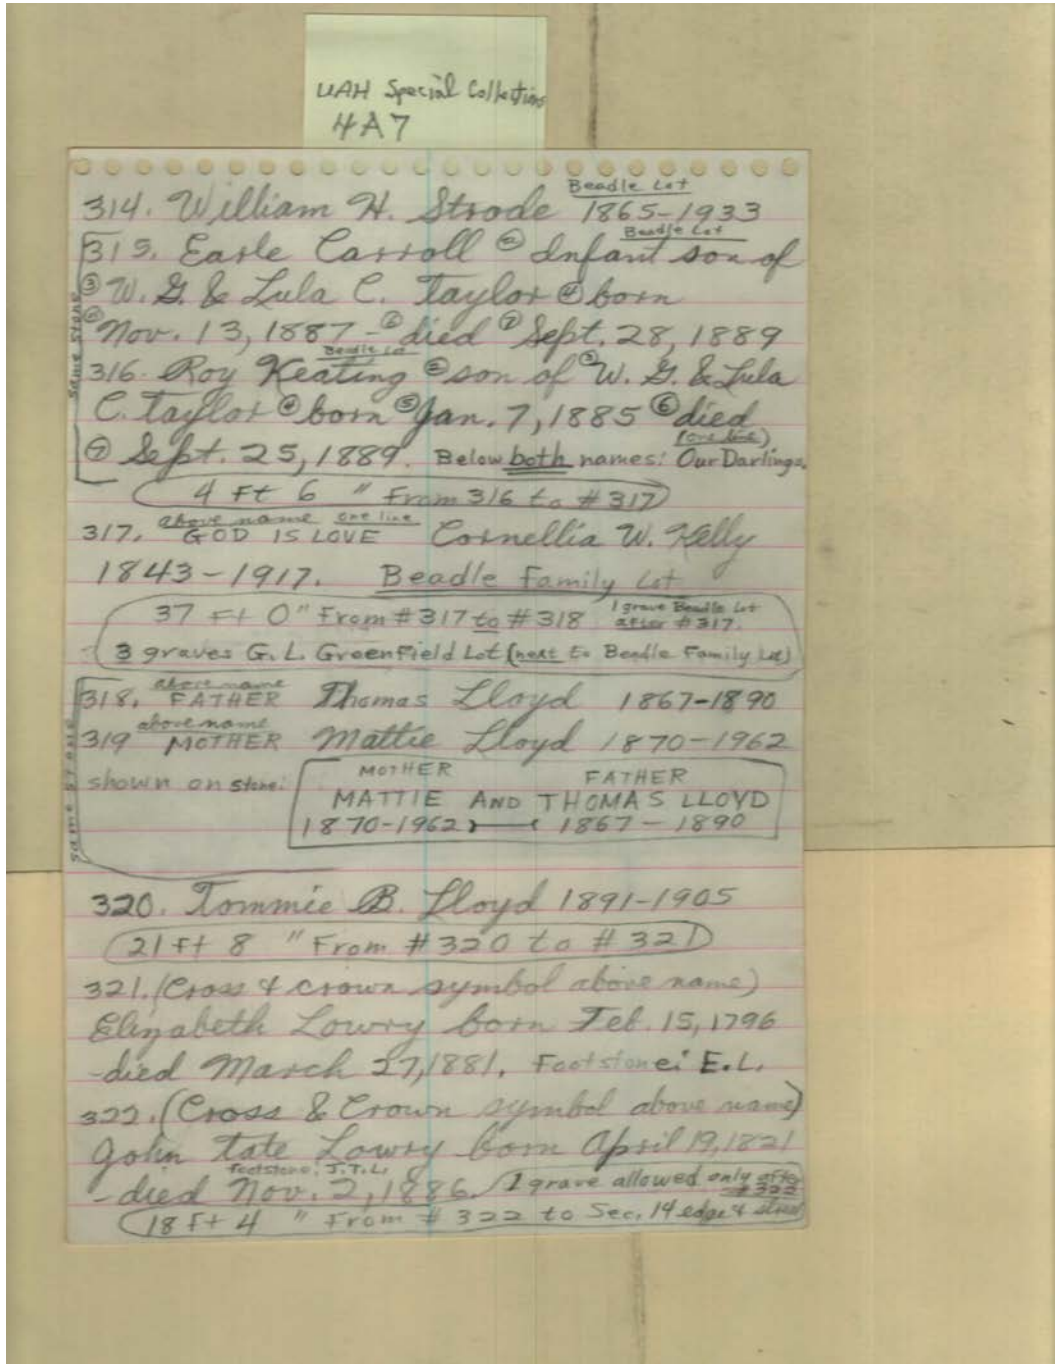 UAH Special Collections
4A7
Beadle Lot
314. William H. Strode 1865-1933
Beadle Lot
315. Earle Carroll ② Infant son of
③ W. G. & Lula C. Taylor ④ born
⑤ Nov. 13, 1887 - ⑥ died ⑦ Sept. 28, 1889
Beadle Lot
316. Roy Keating ② son of ③ W. G. & Lula
C. Taylor ④ born ⑤ Jan. 7, 1885 ⑥ died
(one line)
⑦ Sept. 25, 1889. Below both names: Our Darlings.
same stone
4 Ft 6 " From 316 to # 317
above name one line
317. GOD IS LOVE Cornellia W. Kelly
1843-1917. Beadle Family Lot
37 Ft 0" From #317 to #318 1 grave Beadle Lot
after #317.
3 graves G. L. Greenfield Lot (next to Beadle Family Lot)
above name
318. FATHER Thomas Lloyd 1867-1890
above name
319 MOTHER Mattie Lloyd 1870-1962
same stone
shown on stone:
MOTHER FATHER
MATTIE AND THOMAS LLOYD
1870-1962 1867-1890
320. Tommie B. Lloyd 1891-1905
21 Ft 8 " From #320 to #321
321. (Cross & crown symbol above name)
Elizabeth Lowry born Feb. 15, 1796
-died March 27, 1881. Footstone: E.L.
322. (Cross & Crown symbol above name)
John Tate Lowry born April 19, 1821
footstone: J.T.L.
-died Nov. 2, 1886. 1 grave allowed only after
#322
18 Ft 4 " From # 322 to Sec. 14 edge & street